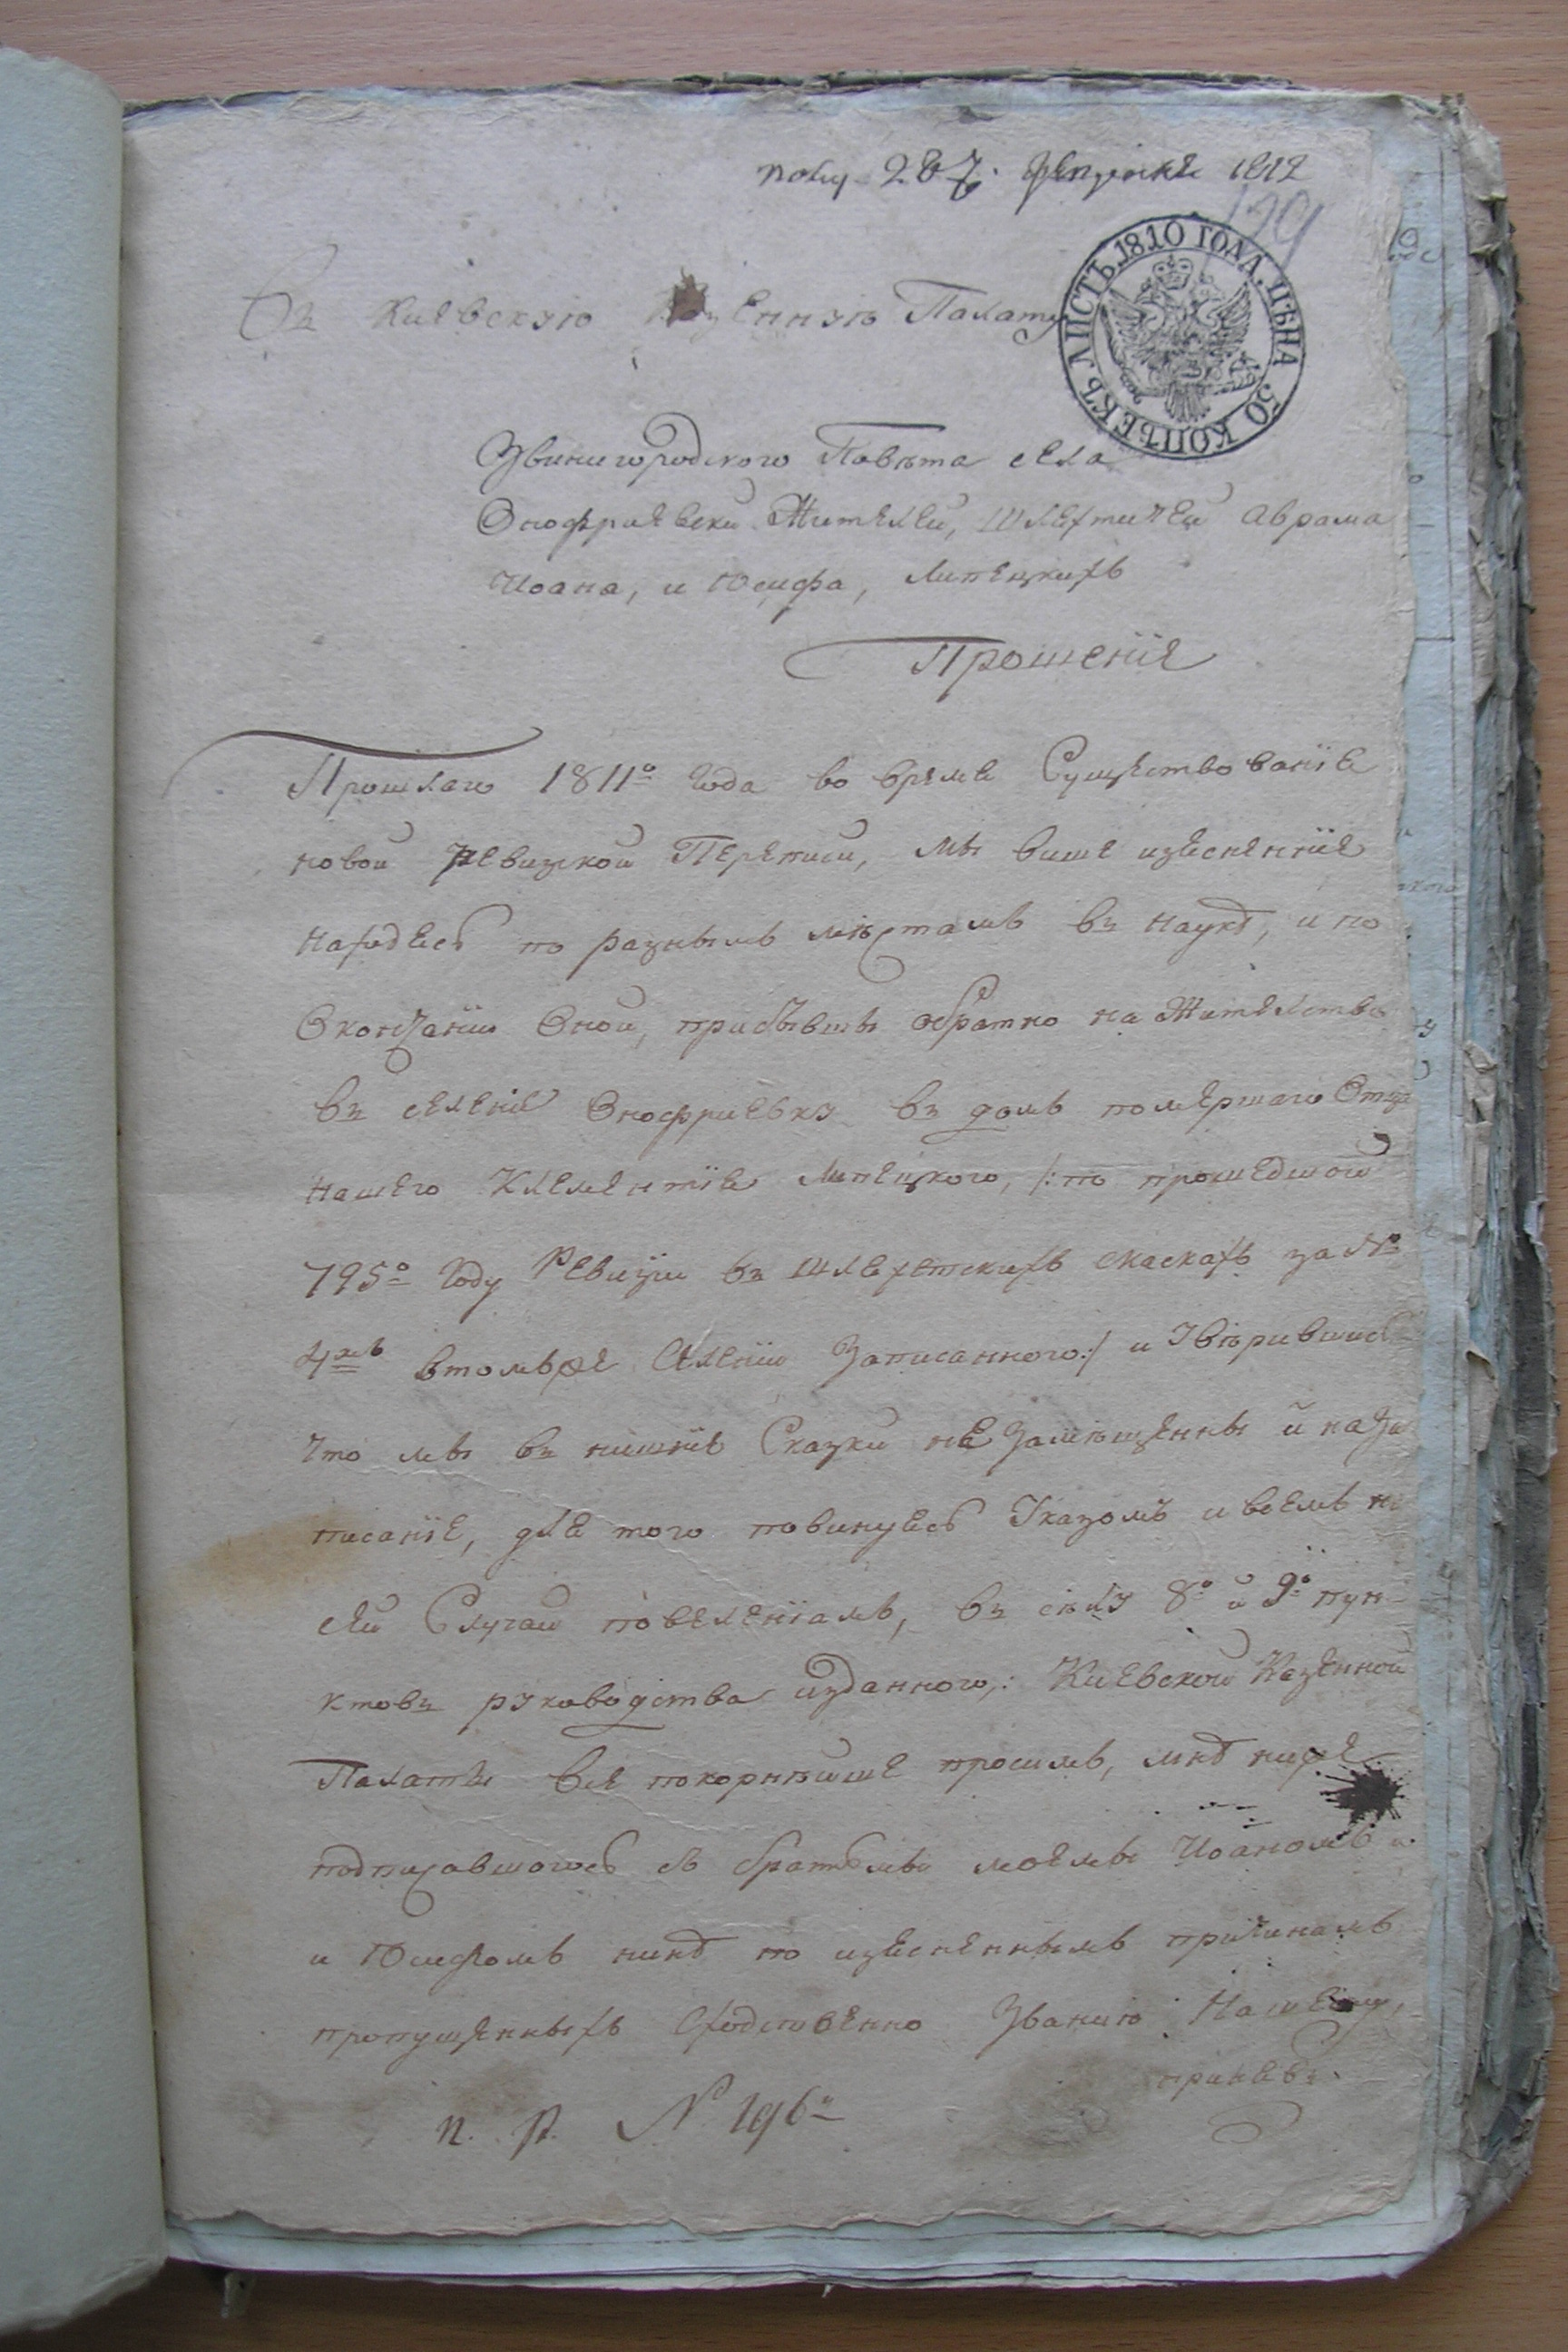 полу. 287. 1812
129
ЛИСТЪ 1810 ГОДА. ЦѢНА 50 КОПѢЕКЪ
Въ Киевскую Казенную Палату
Звинигородского Повѣта села
Онофриевки Жителей, Шляхтичей Аврама
Иоана, и Юсифа, Липецкихъ
Прошеніе
Прошлаго 1811о года во время Существованія
новой ревизкой Переписи, мы више изясненніе
находясь по разнымъ мѣстамъ въ наукѣ, и по
Окончаніи Оной, прибывши обратно на Жителство
въ селеніе Онофриевку въ домъ помершаго Отца
нашего Клементія Липецкого, /:по прошедшой
795о году Ревизіи въ Шляхетскихъ скаскахъ за №
4мъ втомъже Селеніи Записанного:/ и Увѣрившись
что мы въ нишнѣ Сказки не Замѣщенны и на За
писаніе, для того повинуясь Указомъ и всемъ на
сей Случай повеленіамъ, въ силу 8о и 9о пун-
ктовъ руководства изданного,: Киевской Казенной
Палаты все покорнѣйше просимъ, мнѣ ниже
подписавшогось съ братями моеми Иоаномъ и
и Юсифомъ нинѣ по изясненнымъ причинамъ
пропущенныхъ Сходственно Званию Нашему,
принявъ.
П. Р. № 196о